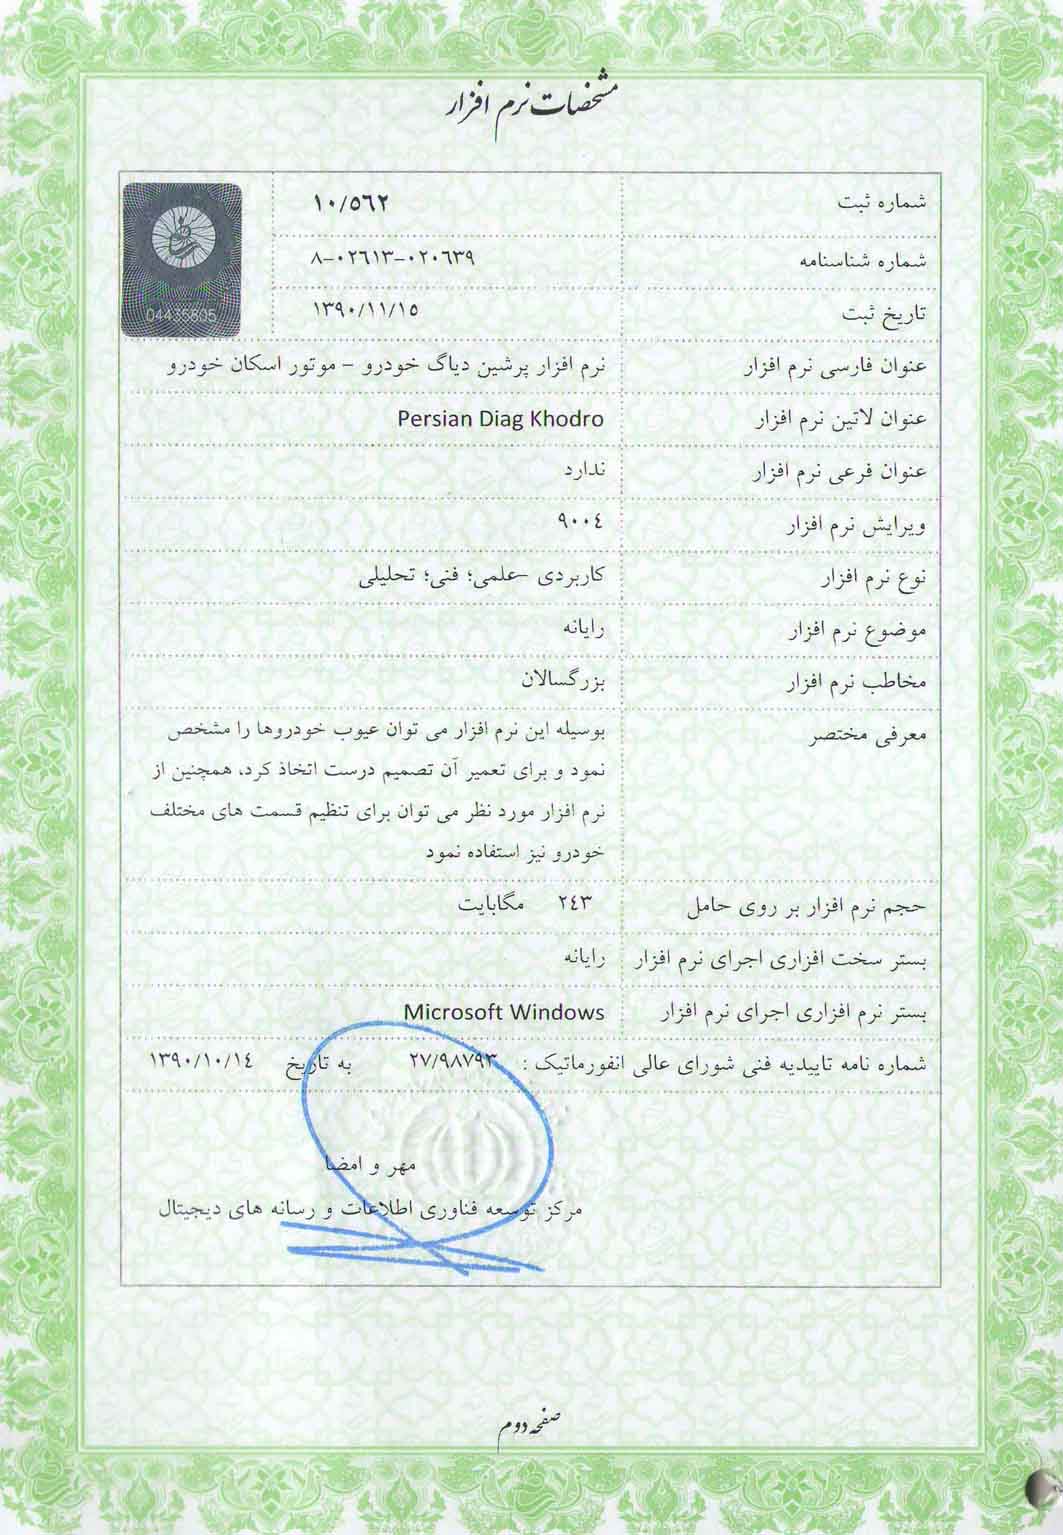 مشخصات نرم افزار
شماره ثبت ۱۰/۵٦۲
شماره شناسنامه ۸-۰۲٦۱۳-۰۲۰٦۳۹
تاریخ ثبت ۱۳۹۰/۱۱/۱۵
04435605
عنوان فارسی نرم افزار نرم افزار پرشین دیاگ خودرو – موتور اسکان خودرو
عنوان لاتین نرم افزار Persian Diag Khodro
عنوان فرعی نرم افزار ندارد
ویرایش نرم افزار ۹۰۰٤
نوع نرم افزار کاربردی –علمی؛ فنی؛ تحلیلی
موضوع نرم افزار رایانه
مخاطب نرم افزار بزرگسالان
معرفی مختصر بوسیله این نرم افزار می توان عیوب خودروها را مشخص
نمود و برای تعمیر آن تصمیم درست اتخاذ کرد، همچنین از
نرم افزار مورد نظر می توان برای تنظیم قسمت های مختلف
خودرو نیز استفاده نمود
حجم نرم افزار بر روی حامل ۲٤۳ مگابایت
بستر سخت افزاری اجرای نرم افزار رایانه
بستر نرم افزاری اجرای نرم افزار Microsoft Windows
شماره نامه تاییدیه فنی شورای عالی انفورماتیک : ۲۷/۹۸۷۹۳ به تاریخ ۱۳۹۰/۱۰/۱٤
مهر و امضا
مرکز توسعه فناوری اطلاعات و رسانه های دیجیتال
صفحه دوم